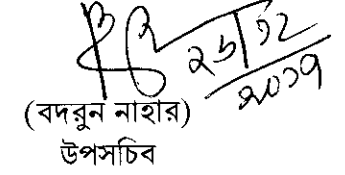 ২৬/১২
২০১৭
(বদরুন নাহার)
উপসচিব